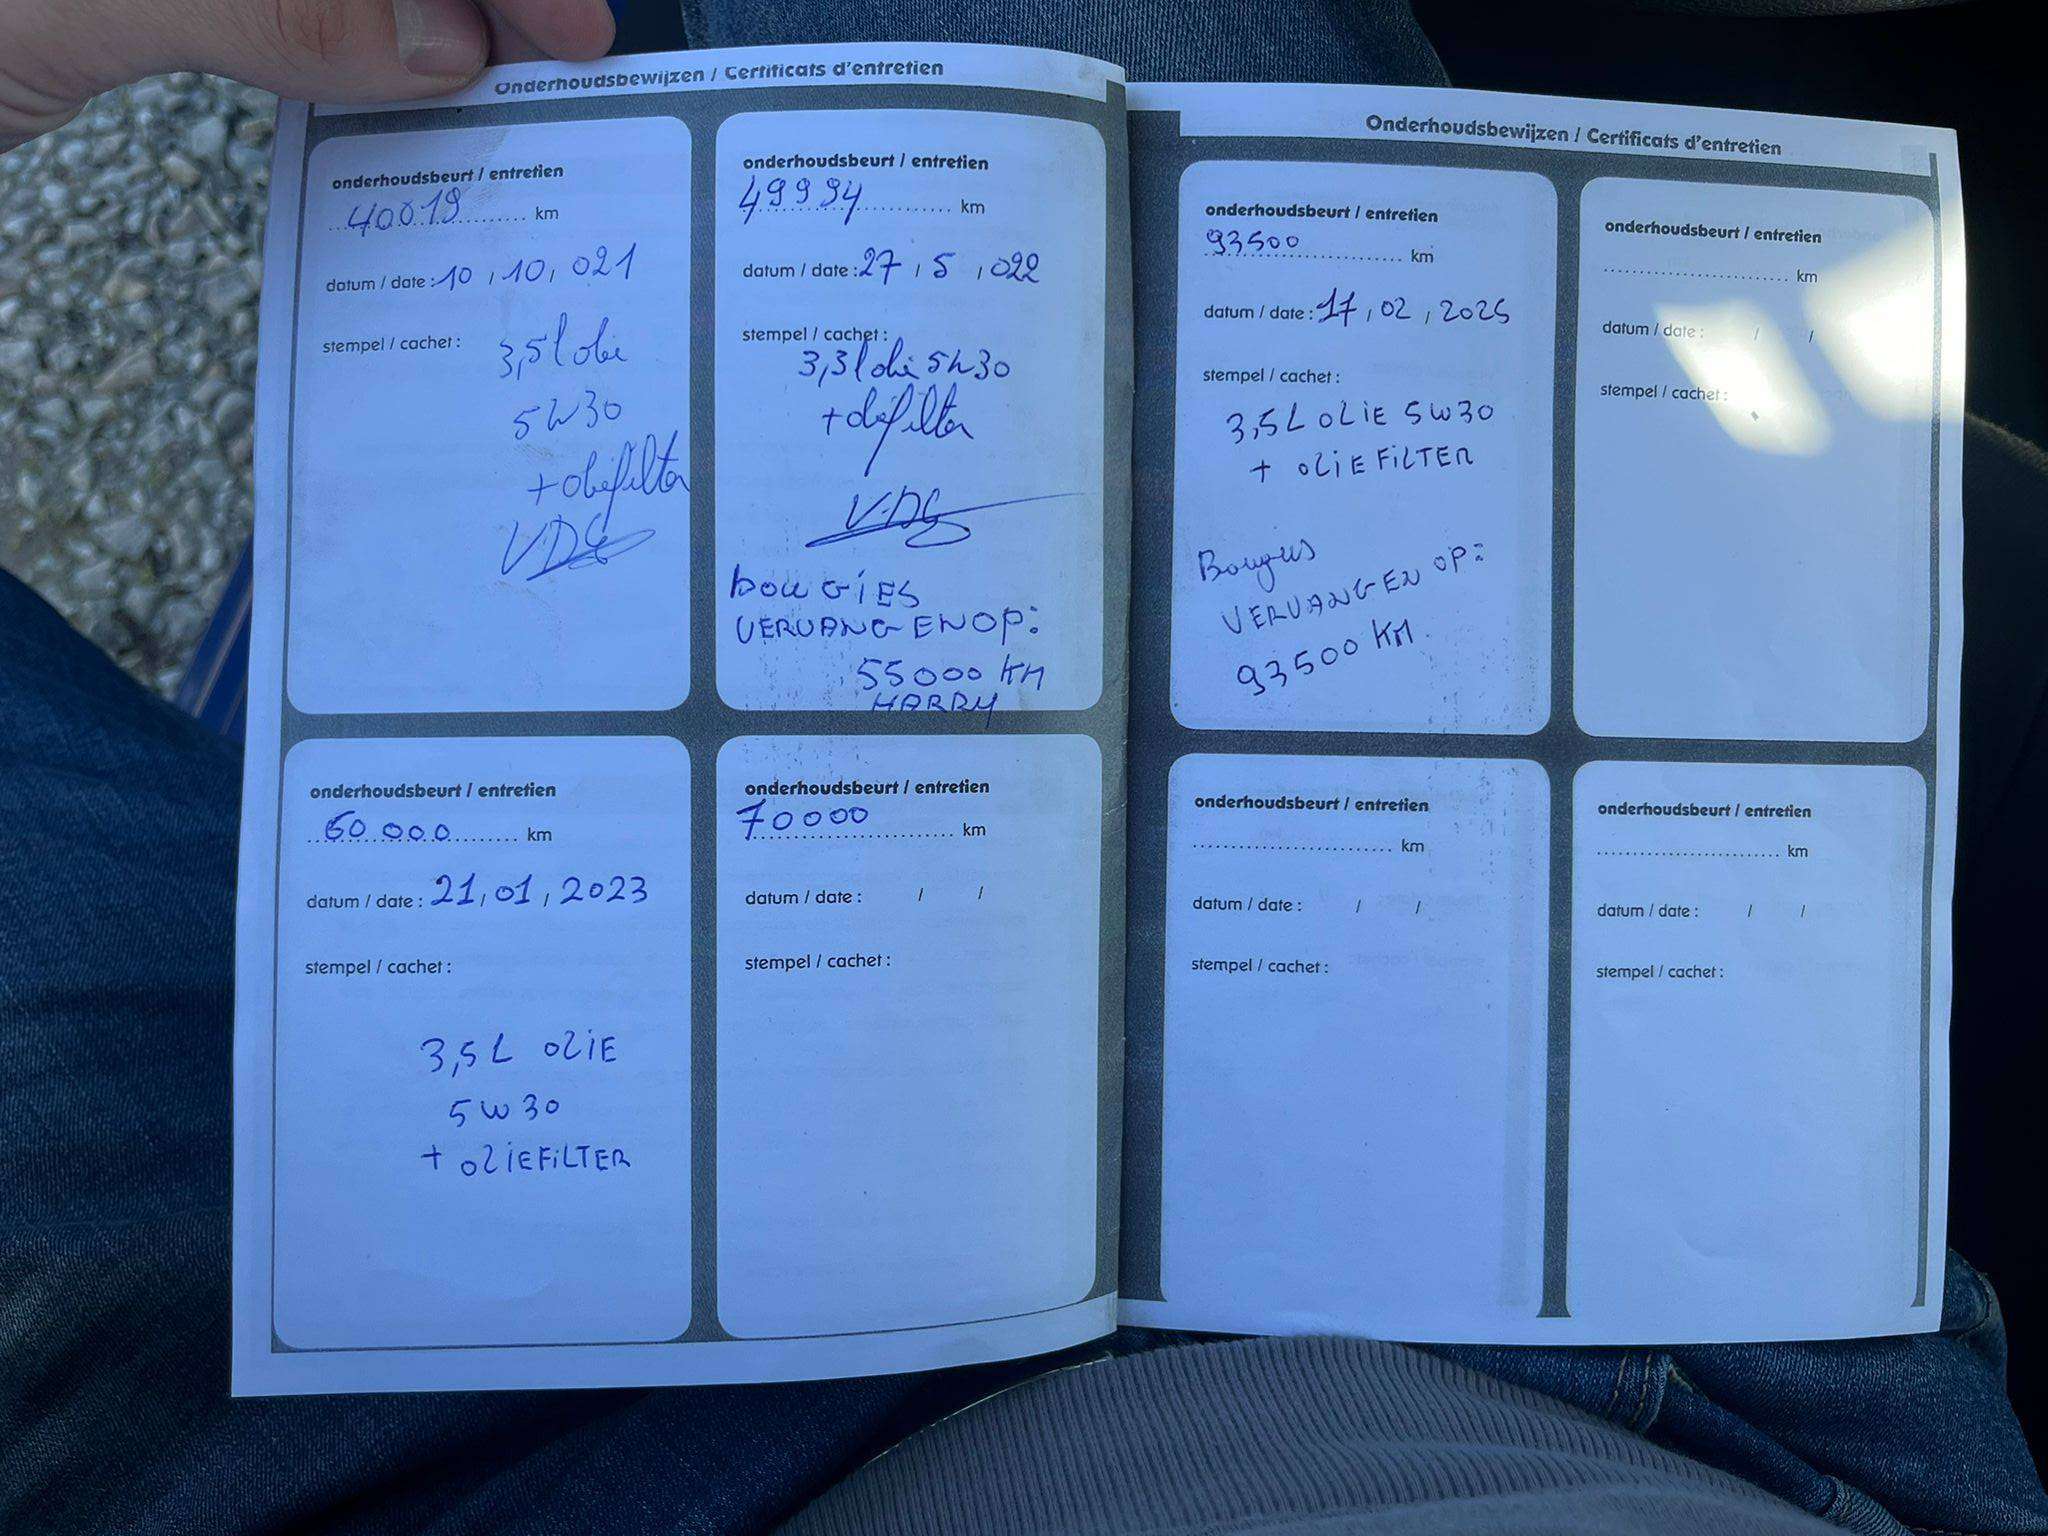 Onderhoudsbewijzen / Certificats d'entretien
onderhoudsbeurt / entretien
40019 km
datum / date : 10 / 10 / 021
stempel / cachet :
3,5l olie
5w30
+ oliefilter
VDG
onderhoudsbeurt / entretien
49994 km
datum / date : 27 / 5 / 022
stempel / cachet :
3,3l olie 5w30
+ oliefilter
VDG
bougies
VERVANGEN OP:
55000 KM
HARRY
onderhoudsbeurt / entretien
60.000 km
datum / date : 21 / 01 / 2023
stempel / cachet :
3,5L OLIE
5W30
+ OLIEFILTER
onderhoudsbeurt / entretien
70000 km
datum / date : / /
stempel / cachet :
Onderhoudsbewijzen / Certificats d'entretien
onderhoudsbeurt / entretien
93500 km
datum / date : 17 / 02 / 2025
stempel / cachet :
3,5L OLIE 5W30
+ OLIEFILTER
Bougies
VERVANGEN OP:
93500 KM
onderhoudsbeurt / entretien
km
datum / date : / /
stempel / cachet :
onderhoudsbeurt / entretien
km
datum / date : / /
stempel / cachet :
onderhoudsbeurt / entretien
km
datum / date : / /
stempel / cachet :